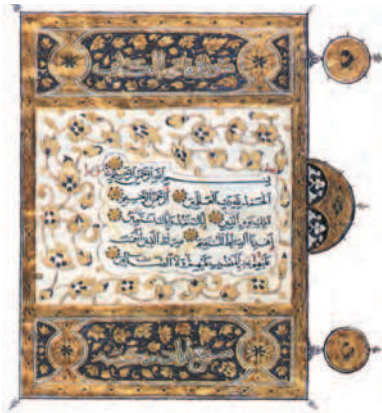 بسم الله الرحمن الرحيم
الحمد لله رب العلمين الرحمن الرحيم
ملك يوم الدين إياك نعبد وإياك نستعين
اهدنا الصراط المستقيم صراط الذين أنعمت
عليهم غير المغضوب عليهم ولا الضالين